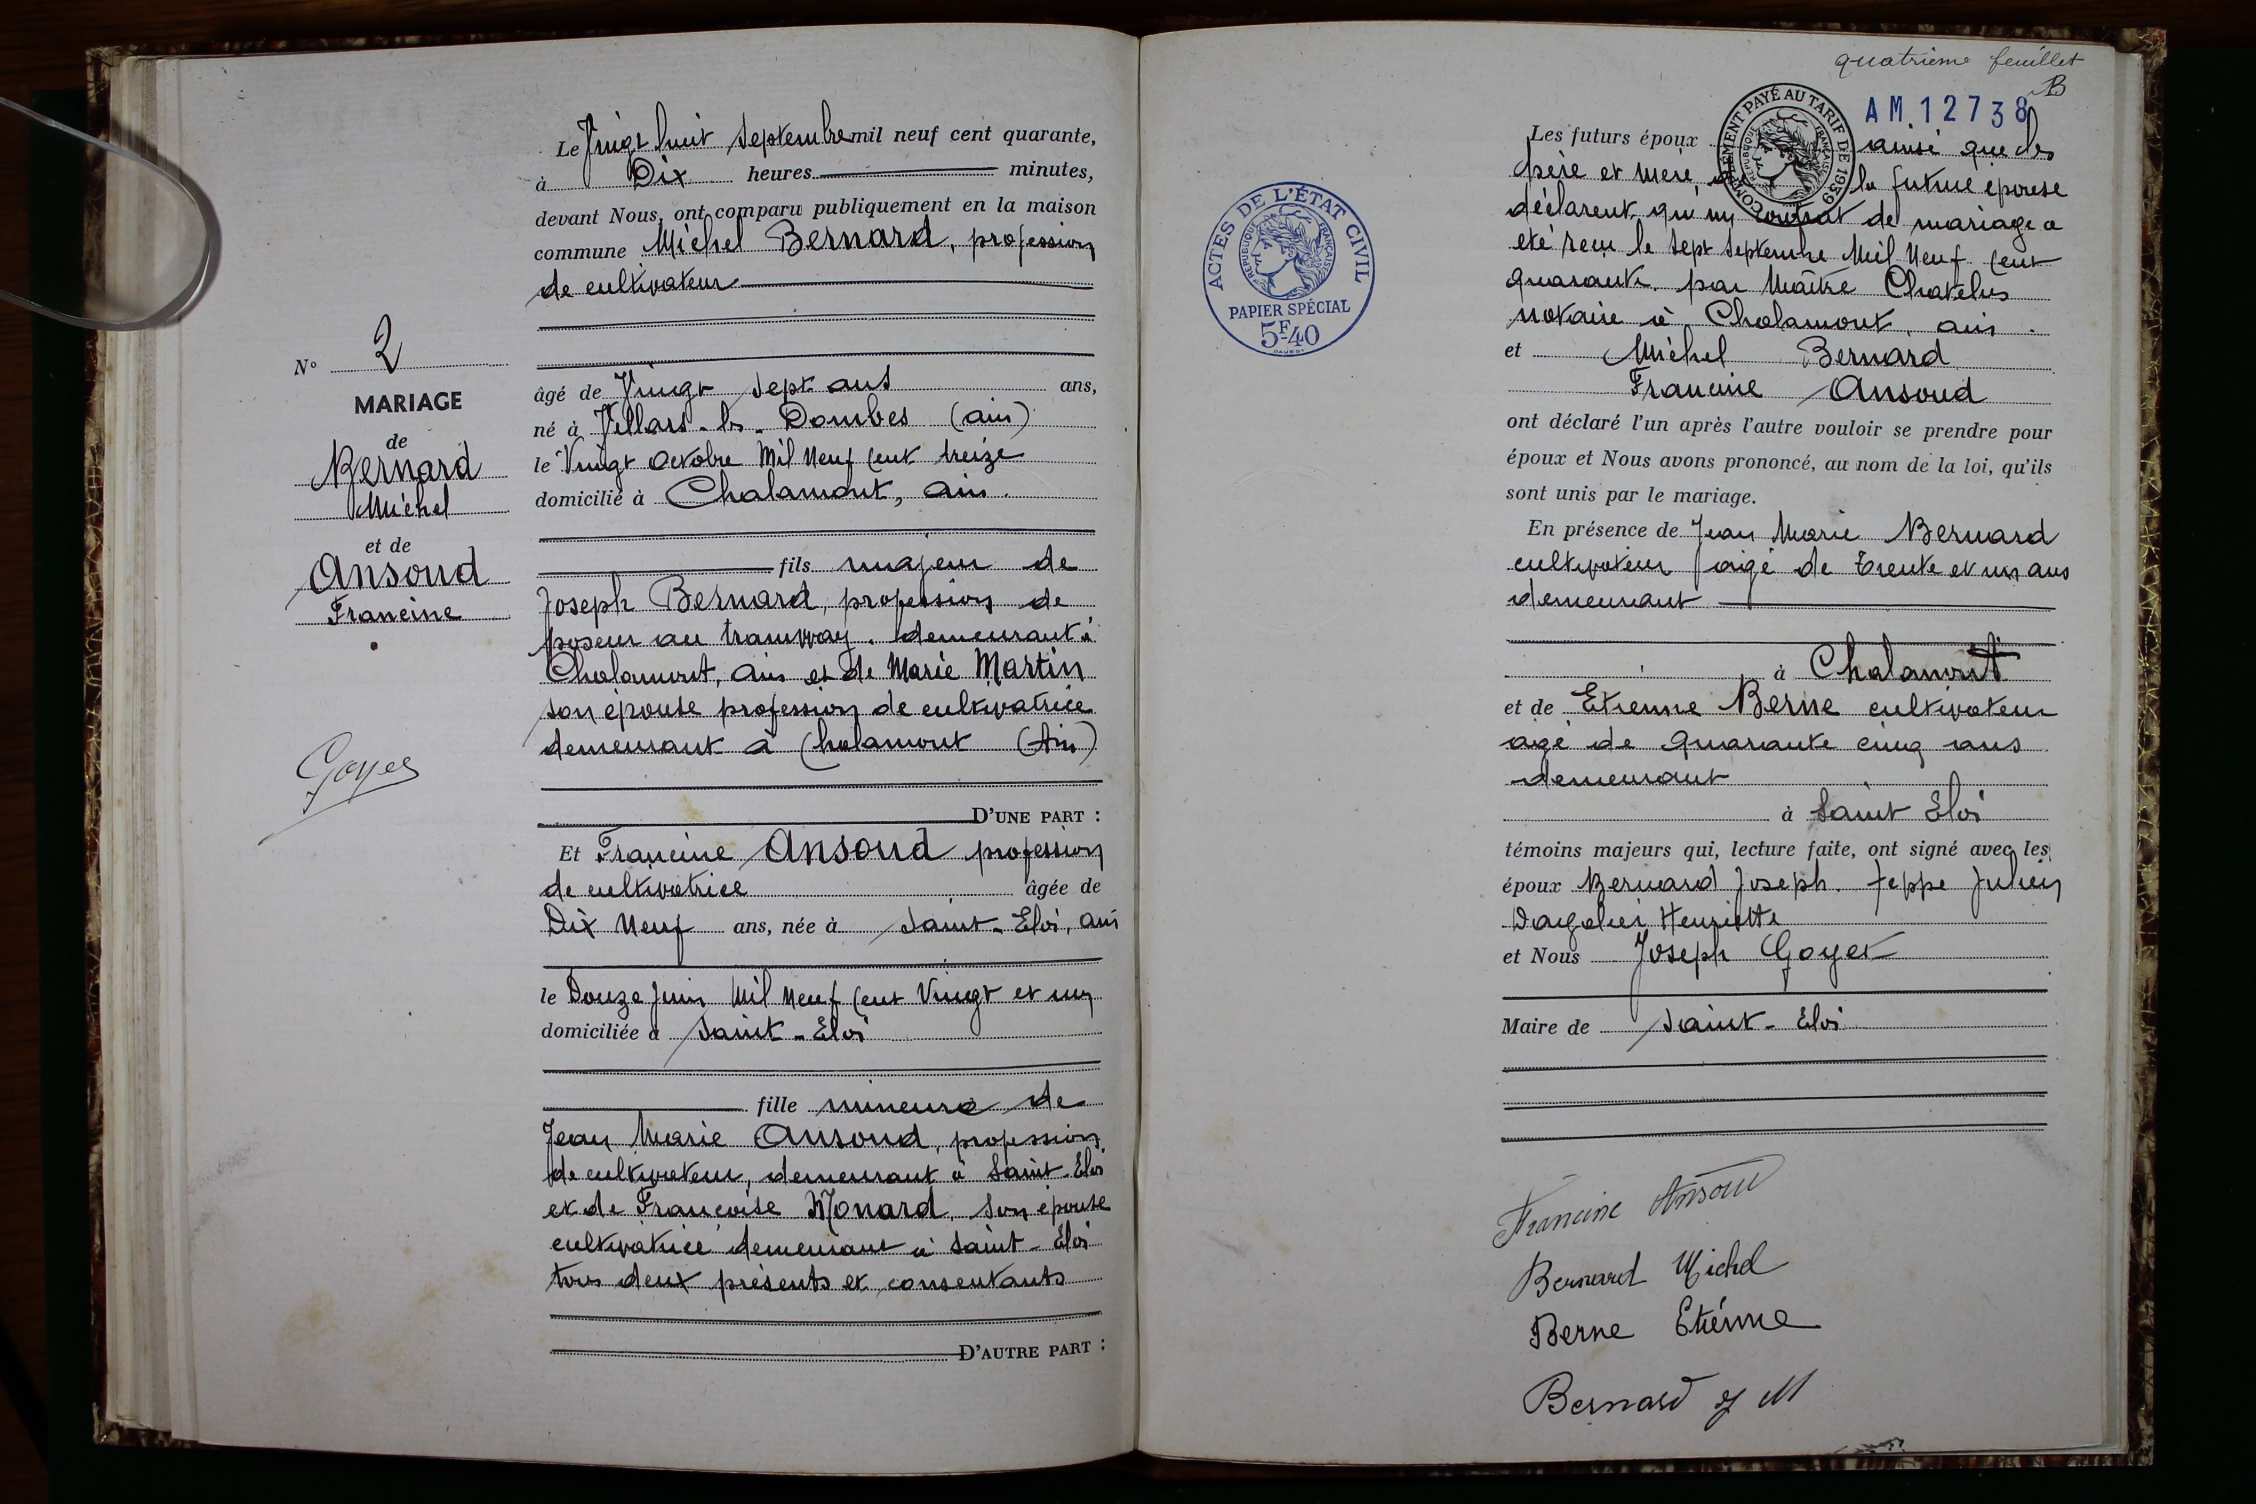 Le Vingt huit septembre mil neuf cent quarante,
à Dix heures minutes,
devant Nous, ont comparu publiquement en la maison
commune Michel Bernard, profession
de cultivateur
N° 2
MARIAGE
de
Bernard
Michel
et de
Ansoud
Francine
Goyet
âgé de Vingt sept ans ans,
né à Villars-les-Dombes (ain)
le Vingt octobre Mil Neuf Cent treize
domicilié à Chalamont, ain.
fils majeur de
Joseph Bernard, profession de
poseur au tramway. demeurant à
Chalamont, Ain et de Marie Martin
son épouse profession de cultivatrice
demeurant à Chalamont (Ain)
D'UNE PART :
Et Francine Ansoud profession
de cultivatrice âgée de
Dix Neuf ans, née à Saint-Eloi, ain
le Douze Juin Mil Neuf Cent Vingt et un
domiciliée à Saint-Eloi
fille mineure de
Jean Marie Ansoud, profession
de cultivateur, demeurant à Saint-Eloi
et de Françoise Monard, son épouse
cultivatrice demeurant à Saint-Eloi
tous deux présents et consentants
D'AUTRE PART :
ACTES DE L'ÉTAT CIVIL
RÉPUBLIQUE FRANÇAISE
PAPIER SPÉCIAL
5F40
quatrième feuillet
B
COMPLÉMENT PAYÉ AU TARIF DE 1939
RÉPUBLIQUE FRANÇAISE
AM.12738
Les futurs époux ainsi que les
père et mère, la future épouse
déclarent qu'un contrat de mariage a
été reçu le sept septembre Mil Neuf Cent
quarante. par Maître Chatelus
notaire à Chalamont. ain.
et Michel Bernard
Francine Ansoud
ont déclaré l'un après l'autre vouloir se prendre pour
époux et Nous avons prononcé, au nom de la loi, qu'ils
sont unis par le mariage.
En présence de Jean Marie Bernard
cultivateur âgé de trente et un ans
demeurant
à Chalamont
et de Etienne Berne cultivateur
âgé de quarante cinq ans
demeurant
à Saint Eloi
témoins majeurs qui, lecture faite, ont signé avec les
époux Bernard Joseph. Feppe Julien
Henriette
et Nous Joseph Goyet
Maire de Saint-Eloi
Francine Ansoud
Bernard Michel
Berne Etienne
Bernard J M